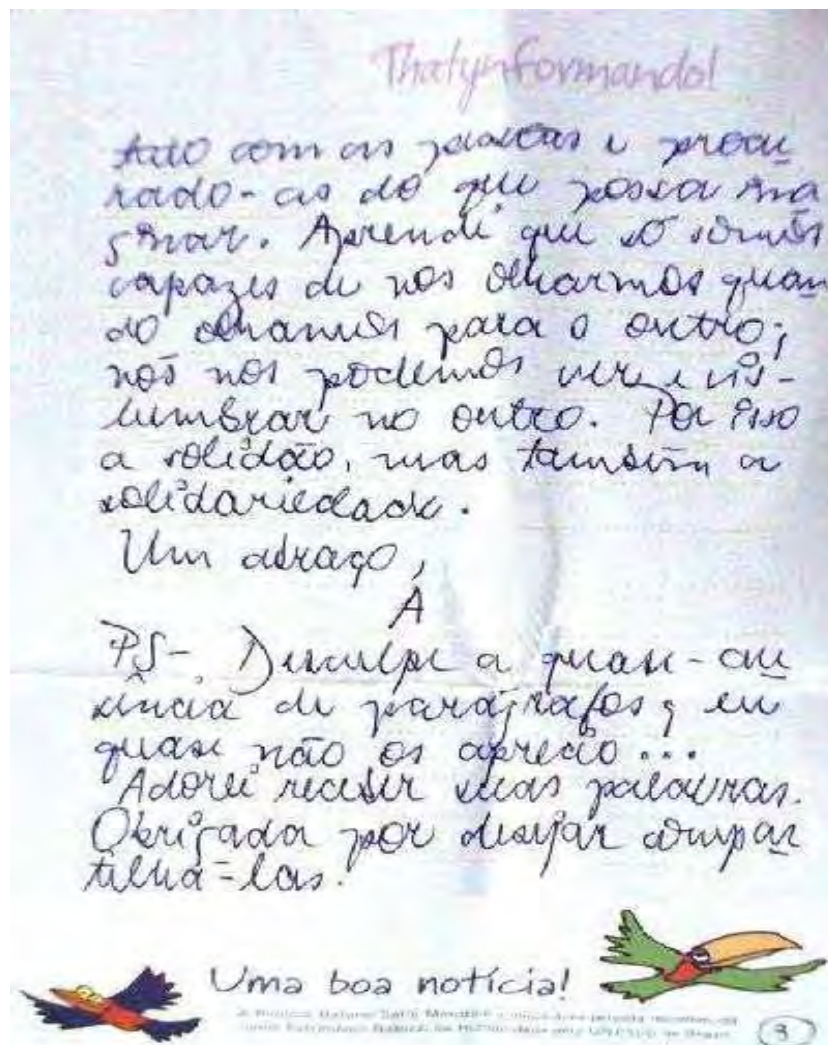 Thatynformando!
com as e procu
rado-as do que possa ima
ginar. Aprendi que só somos
capazes de nos olharmos quan
do olhamos para o outro;
nós nos podemos ver e vis-
lumbrar no outro. Por isso
a solidão, mas também a
solidariedade.
Um abraço,
A
PS-. Desculpe a quase-au
sência de parágrafos, eu
quase não os aprecio...
Adorei receber suas palavras.
Obrigada por desejar compar
tilhá-las.
Uma boa notícia!
3